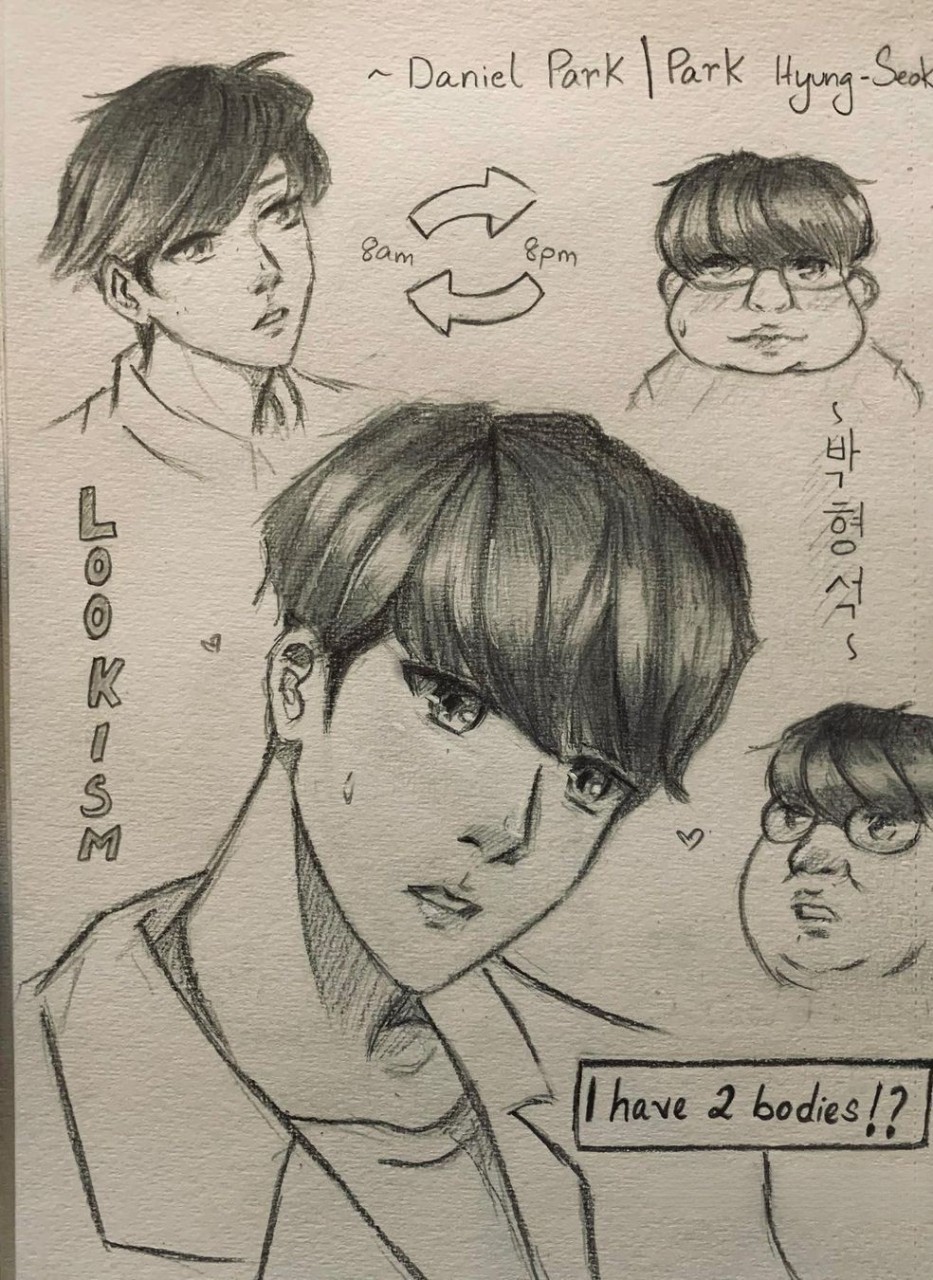 ~ Daniel Park | Park Hyung-Seok
8am
8pm
~박형석~
LOOKISM
I have 2 bodies!?